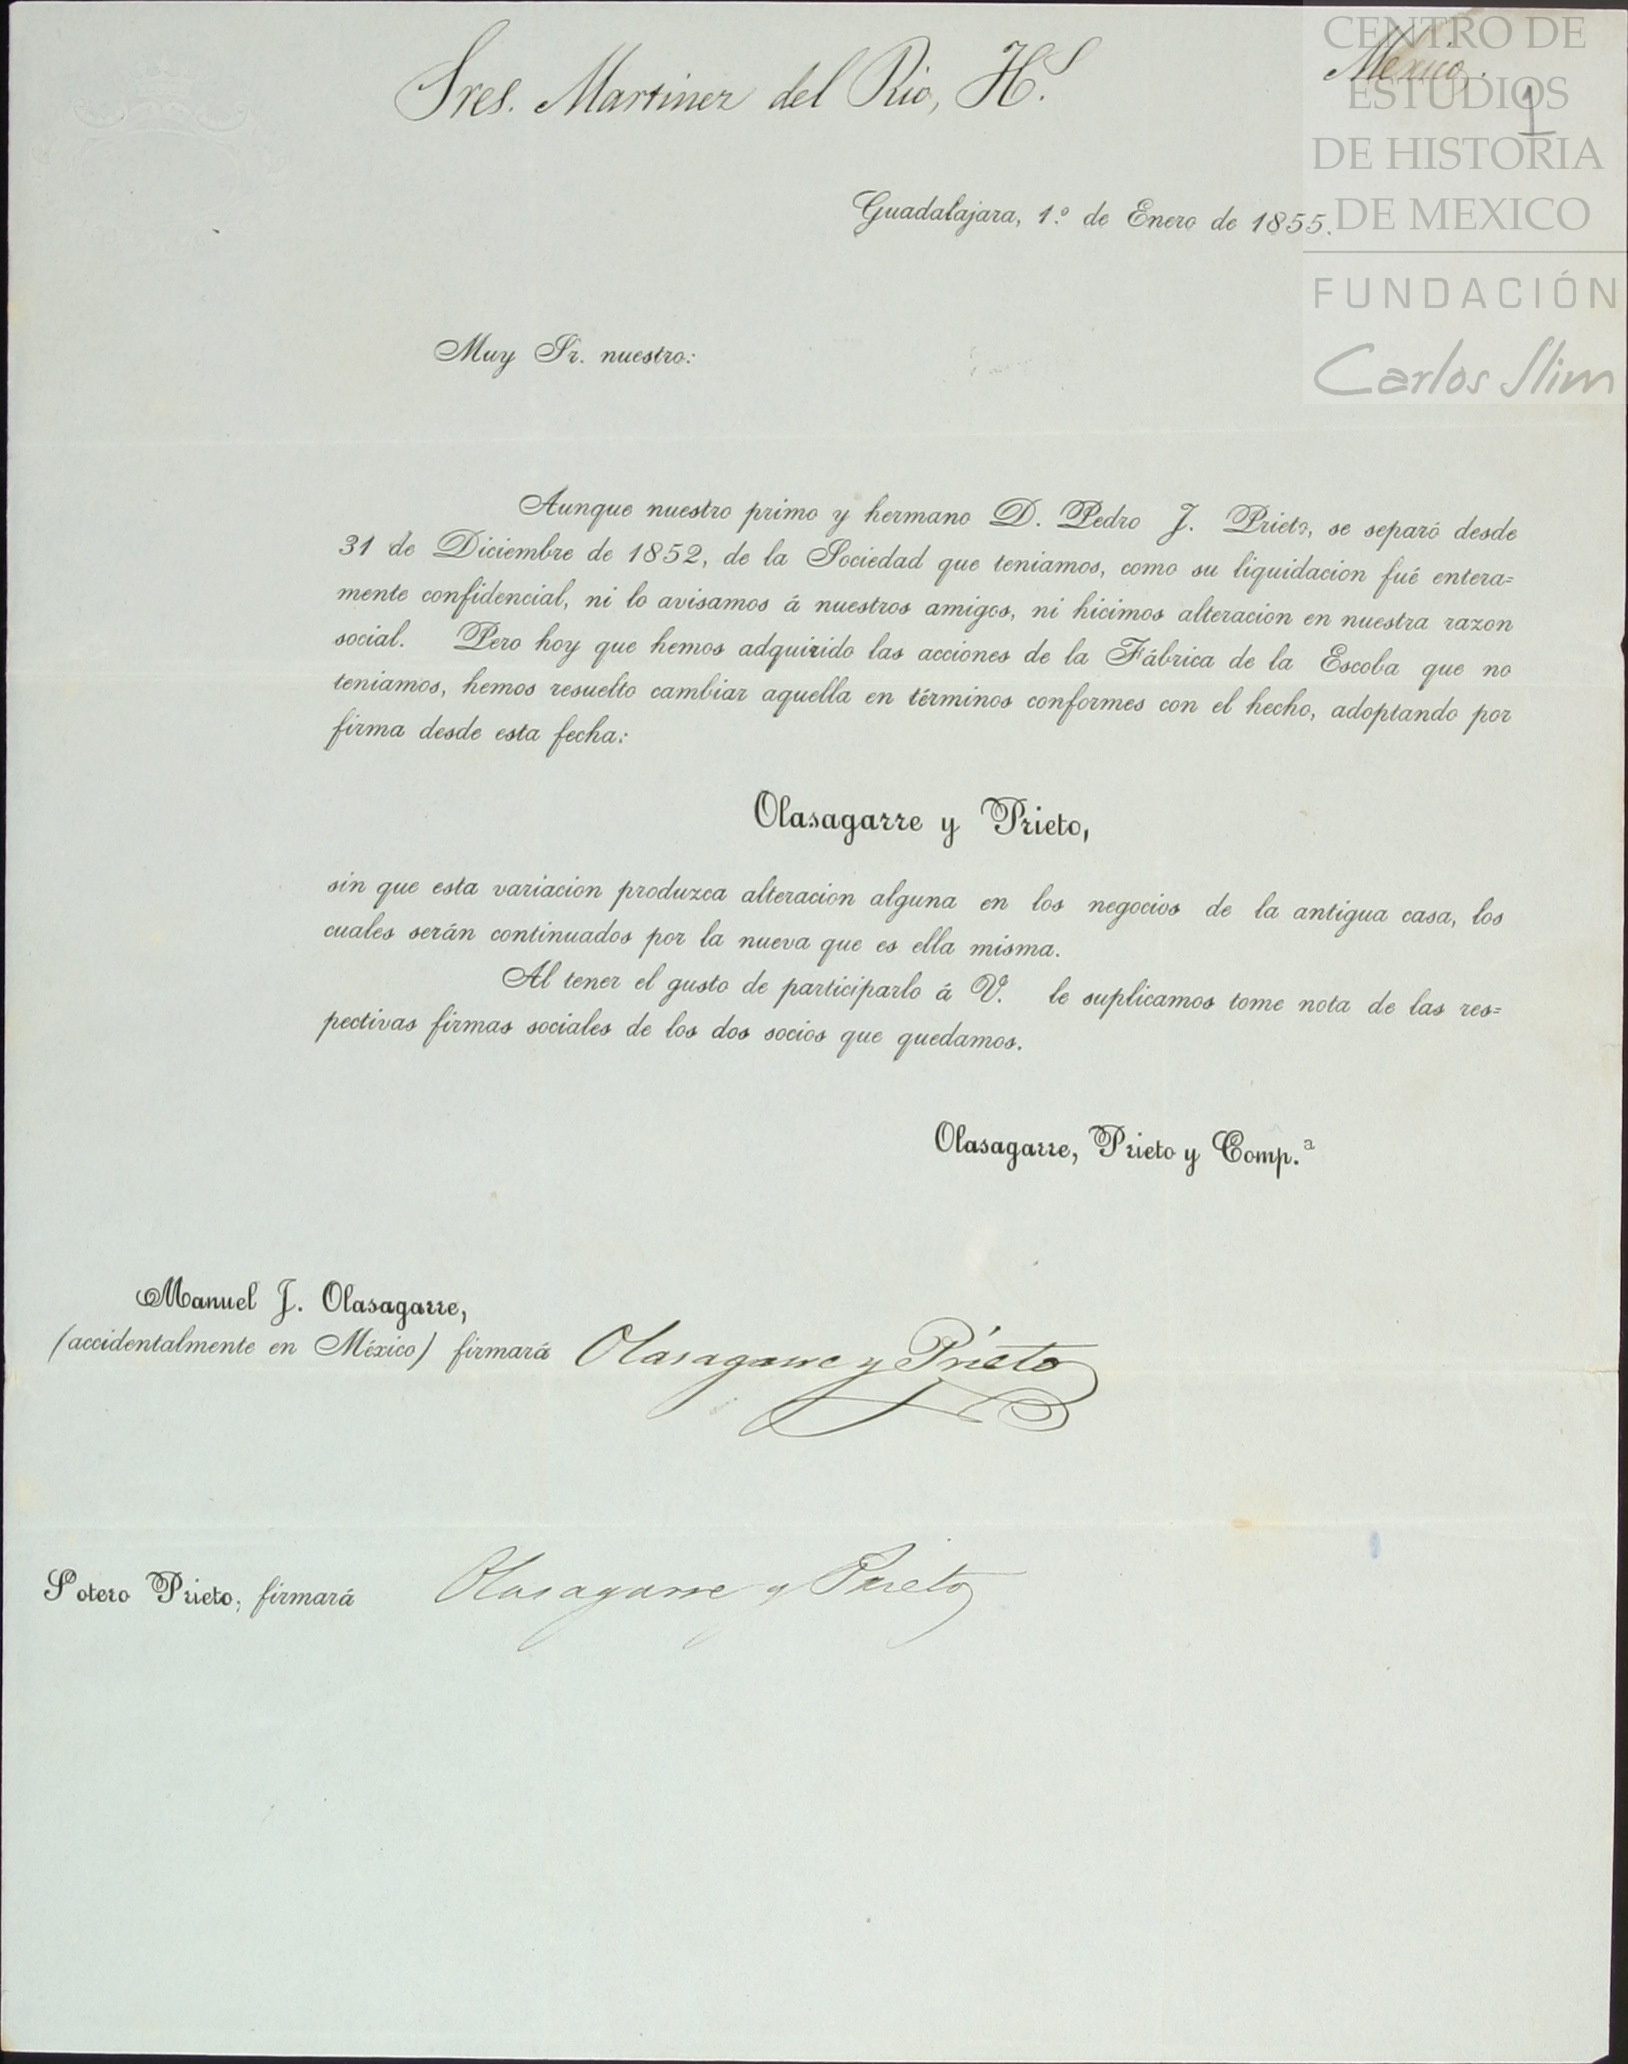 Sres. Martinez del Rio, H.s
Mexico.
1
CENTRO DE
ESTUDIOS
DE HISTORIA
DE MEXICO
FUNDACIÓN
Carlos Slim
Guadalajara, 1.º de Enero de 1855.
Muy Sr. nuestro:
Aunque nuestro primo y hermano D. Pedro J. Prieto, se separó desde
31 de Diciembre de 1852, de la Sociedad que teniamos, como su liquidacion fué entera=
mente confidencial, ni lo avisamos á nuestros amigos, ni hicimos alteracion en nuestra razon
social. Pero hoy que hemos adquirido las acciones de la Fábrica de la Escoba que no
teniamos, hemos resuelto cambiar aquella en términos conformes con el hecho, adoptando por
firma desde esta fecha:
Olasagarre y Prieto,
sin que esta variacion produzca alteracion alguna en los negocios de la antigua casa, los
cuales serán continuados por la nueva que es ella misma.
Al tener el gusto de participarlo á V. le suplicamos tome nota de las res=
pectivas firmas sociales de los dos socios que quedamos.
Olasagarre, Prieto y Comp.ª
Manuel J. Olasagarre,
(accidentalmente en México) firmará Olasagarre y Prieto
Sotero Prieto, firmará Olasagarre y Prieto